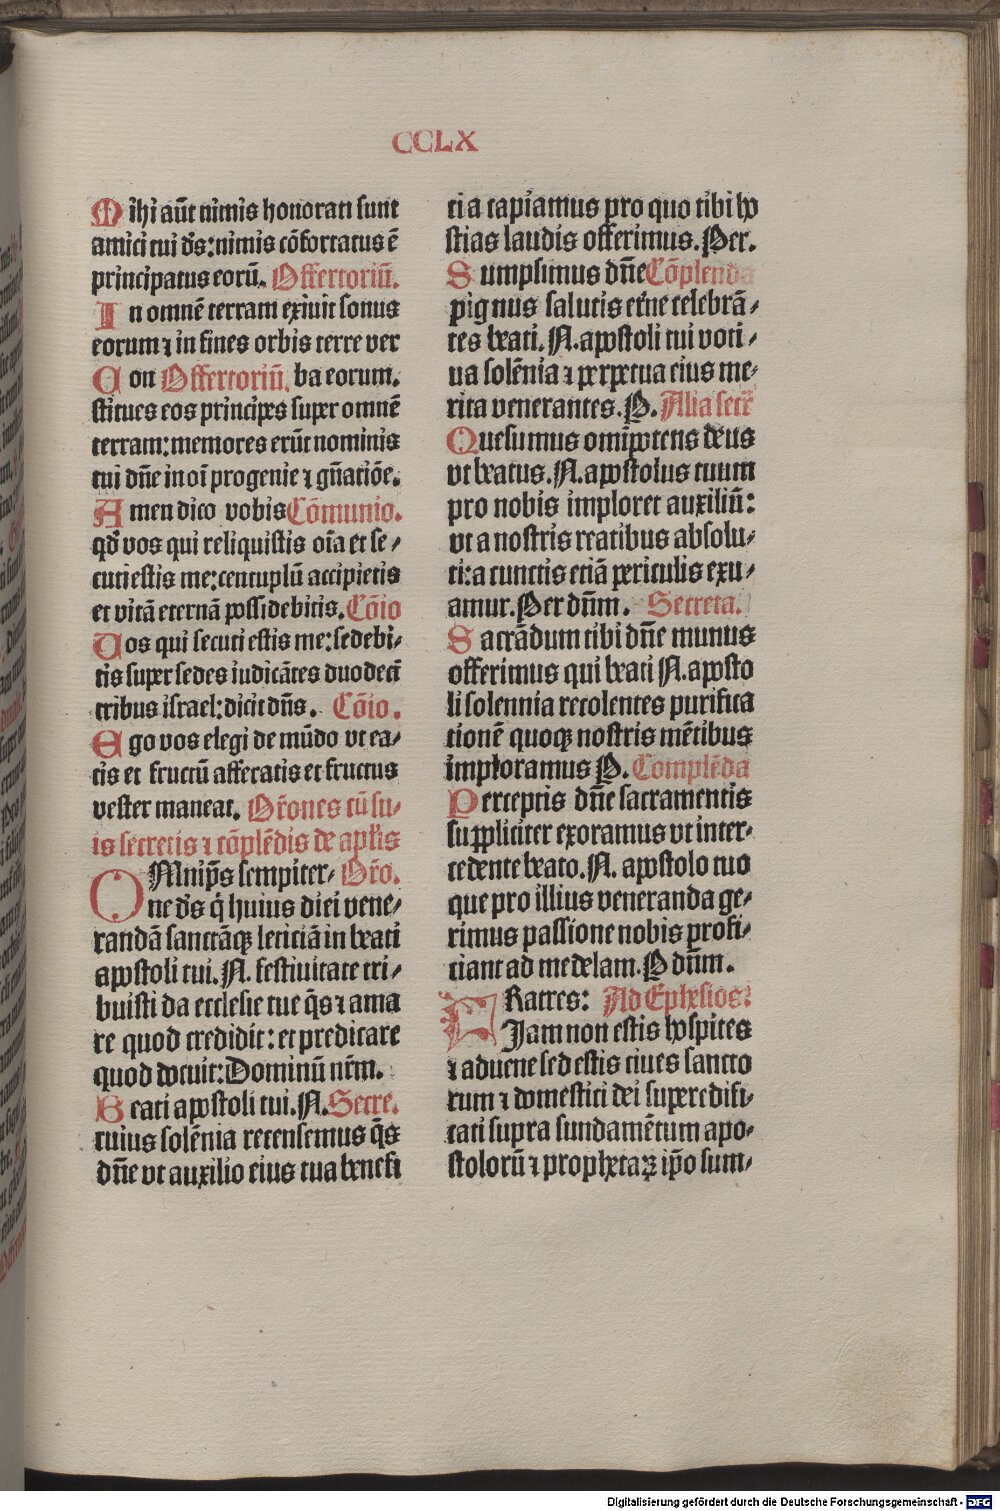 CCLX
Mihi aūt nimis honorati sunt
amici tui ds̄: nimis cōfortatus ē
principatus eorū. Offertoriū.
In omnē terram exiuit sonus
eorum ⁊ in fines orbis terre ver
Con Offertoriū. ba eorum.
stitues eos principes super omnē
terram: memores erūt nominis
tui dn̄e in oī progenie ⁊ gn̄atiōe.
Amen dico vobis Cōmunio.
qd̄ vos qui reliquistis oīa et se⸗
cuti estis me: centuplū accipietis
et vitā eternā possidebitis. Cōio
Vos qui secuti estis me: sedebi⸗
tis super sedes iudicātes duodecī
tribus israel: dicit dn̄s. Cōio.
Ego vos elegi de mūdo vt ea⸗
tis et fructū afferatis et fructus
vester maneat. Or̄ones cū su⸗
is secretis ⁊ cōplēdis de apl̄is
OMnip̄s sempiter⸗ Or̄o.
ne ds̄ q̄ huius diei vene⸗
randā sanctāqꝫ leticiā in beati
apostoli tui. N. festiuitate tri⸗
buisti da ecclesie tue q̄s ⁊ ama
re quod credidit: et predicare
quod docuit: Dominū nr̄m.
Beati apostoli tui. N. Secre.
cuius solēnia recensemus q̄s
dn̄e vt auxilio eius tua benefi
cia capiamus pro quo tibi ho
stias laudis offerimus. Per.
Sumpsimus dn̄e Cōplenda
pignus salutis etn̄e celebrā⸗
tes beati. N. apostoli tui voti⸗
ua solēnia ⁊ perpetua eius me⸗
rita venerantes. P. Alia secr̄
Quesumus omīpotens deus
vt beatus. N. apostolus tuum
pro nobis imploret auxiliū:
vt a nostris reatibus absolu⸗
ti: a cunctis etiā periculis exu⸗
amur. Per dn̄m. Secreta.
Sacrādum tibi dn̄e munus
offerimus qui beati N. aposto
li solennia recolentes purifica
tionē quoqꝫ nostris mētibus
imploramus P. Complēda
Perceptis dn̄e sacramentis
suppliciter exoramus vt inter⸗
cedente beato. N. apostolo tuo
que pro illius veneranda ge⸗
rimus passione nobis profi⸗
ciant ad medelam. P dn̄m.
FRatres: Ad Ephesios:
Jam non estis hospites
⁊ aduene sed estis ciues sancto
rum ⁊ domestici dei superedifi⸗
cati supra fundamētum apo⸗
stolorū ⁊ prophetaꝝ ip̄o sum⸗
Digitalisierung gefördert durch die Deutsche Forschungsgemeinschaft - DFG